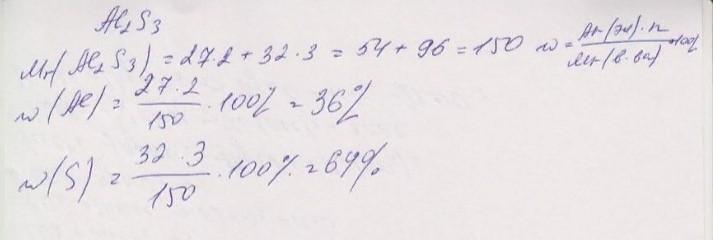 Al₂S₃
Mr(Al₂S₃) = 27·2 + 32·3 = 54 + 96 = 150 w = Ar(эл)·n / Mr(в-ва) · 100%
w(Al) = 27·2 / 150 · 100% = 36%
w(S) = 32·3 / 150 · 100% = 64%